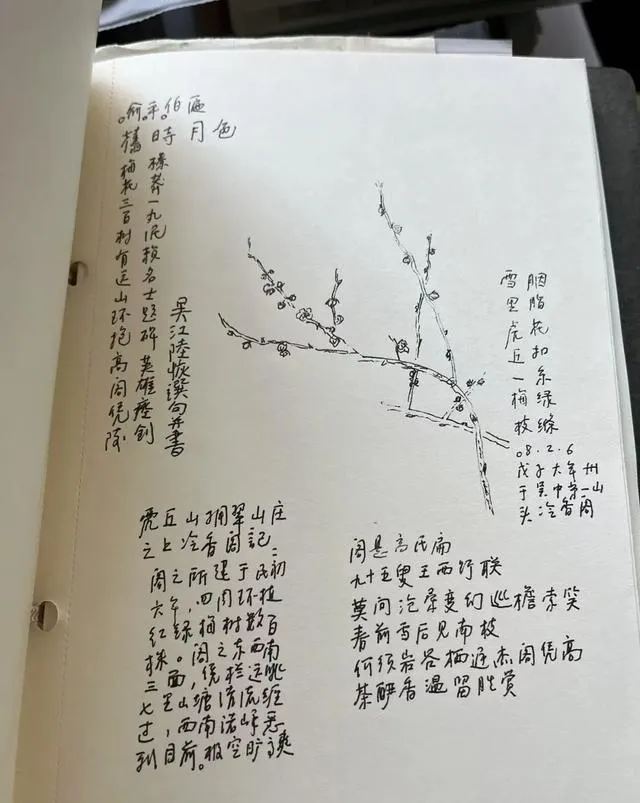 俞平伯匾
舊時月色
榛莽一丸泥赖名士题碑英雄瘗剑
梅花三百树有远山环抱高阁凭陵
吴江陸恢譔句并書
胭脂花扣系绿絛
雪里虎丘一梅枝
08.2.6
戊子大年卅
于吴中第一山
头冷香阁
虎丘山拥翠山庄
之上冷香阁記：
阁之所建于民初
六年，四周环植
红绿梅树数百
株。阁之东西南
三面，凭栏远眺
七里山塘清流
过，西南诸峰悉
到目前。极空旷爽
阁悬高氏扁
九十五叟王西野联
莫问沧桑变幻巡檐索笑
春前雪后见南枝
何须岩谷栖迟杰阁凭高
茶酽香温留胜赏